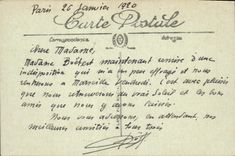 Paris 26 Janvier 1920
Carte Postale
Correspondance Adresse
Chère Madame,
Madame Boff est maintenant remise d'une
indisposition qui m'a un peu effrayé et nous
rentrerons à Marseille vendredi. C'est avec plaisir
que nous retrouverons du vrai Soleil et les bons
amis que nous y avons laissés.
Nous vous adressons, en attendant, nos
meilleures amitiés à tous trois